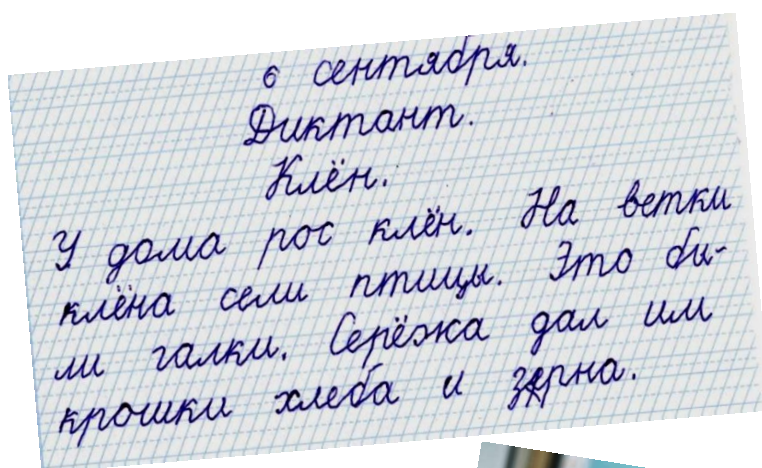 6 сентября.
Диктант.
Клён.
У дома рос клён. На ветки
клёна сели птицы. Это бы-
ли галки. Серёжа дал им
крошки хлеба и зёрна.